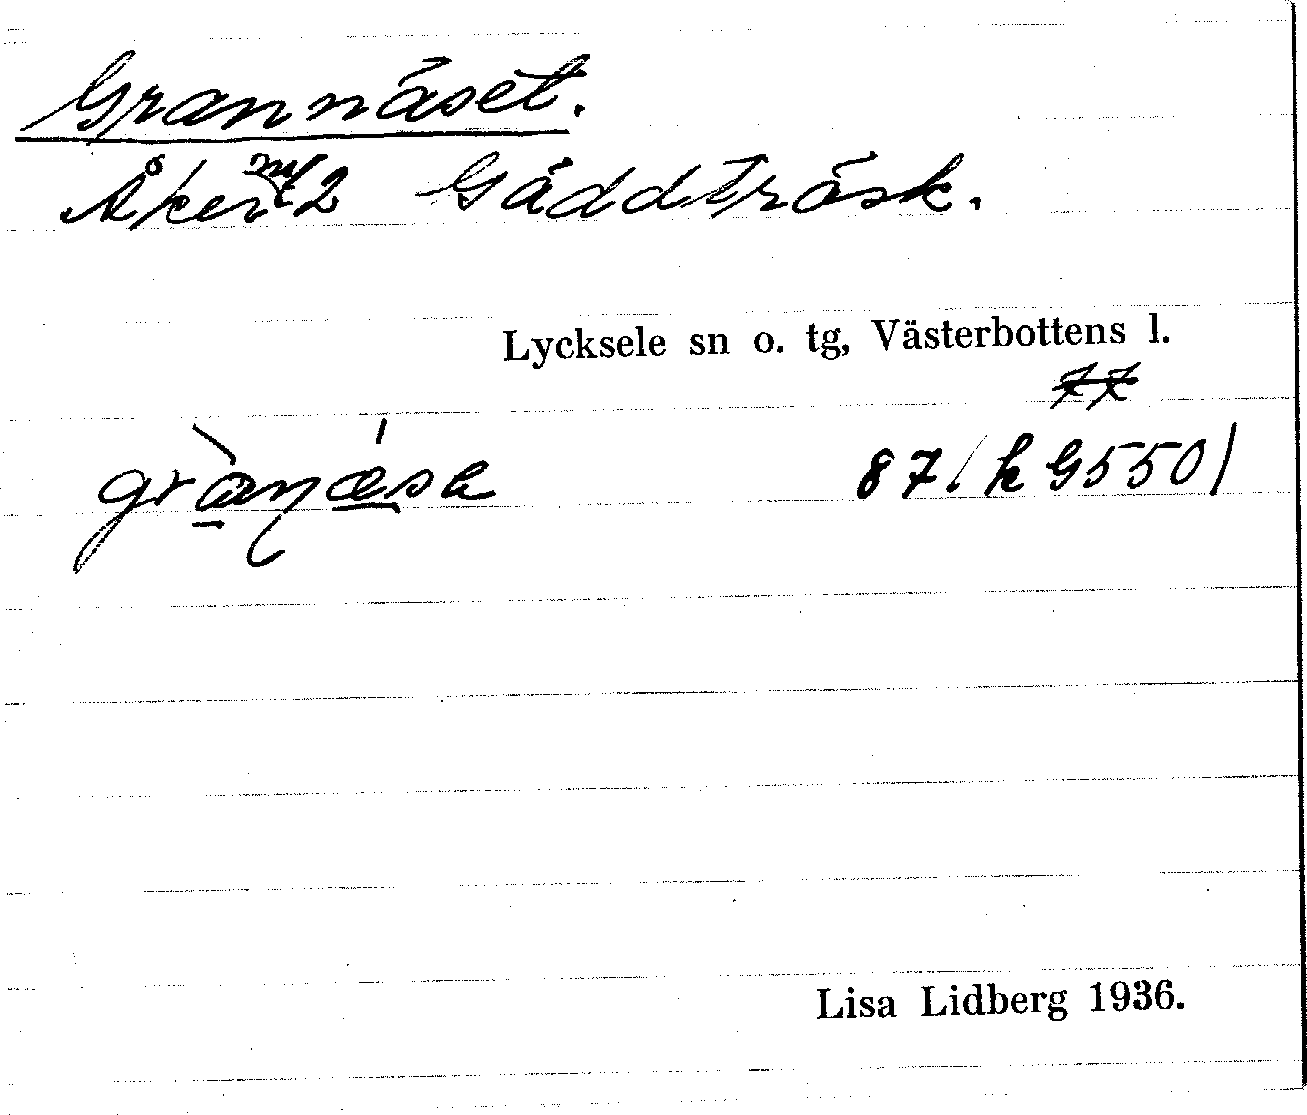 Grannäset.
Åker 2 Gäddträsk.
Lycksele sn o. tg, Västerbottens l.
77
87 (k G550)
Lisa Lidberg 1936.